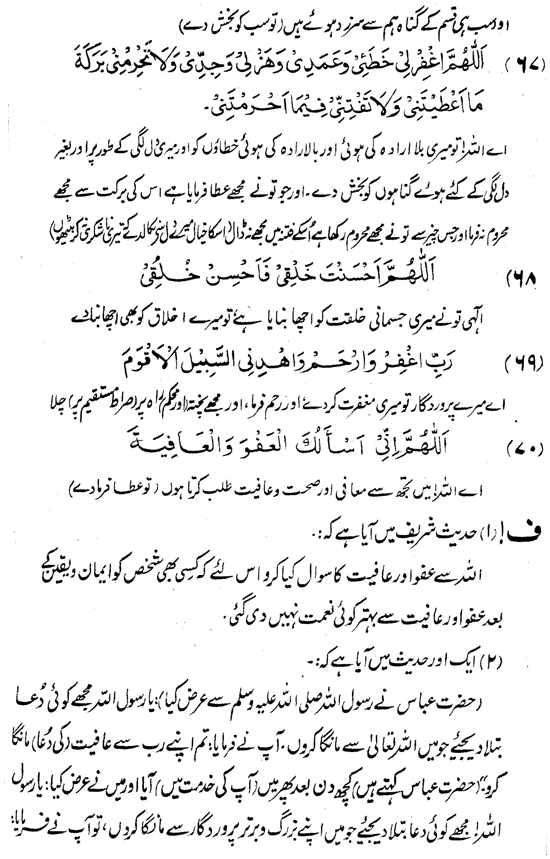 اور سب ہی قسم کے گناہ ہم سے سرزد ہوئے ہیں (تو سب کو بخش دے)
(۶۷) اَللّٰهُمَّ اغْفِرْ لِیْ خَطَئِیْ وَعَمَدِیْ وَهَزْلِیْ وَجِدِّیْ وَلَا تَحْرِمْنِیْ بَرَكَةَ
مَا اَعْطَیْتَنِیْ وَلَا تَفْتِنِّیْ فِیْمَا اَحْرَمْتَنِیْ۔
اے اللہ! تو میری بلا ارادہ کی ہوئی اور بالارادہ کی ہوئی خطاؤں کو اور میری دل لگی کے طور پر اور بغیر
دل لگی کے کئے ہوئے گناہوں کو بخش دے۔ اور جو تو نے مجھے عطا فرمایا ہے اس کی برکت سے مجھے
محروم نہ فرما اور جس چیز سے تو نے مجھے محروم رکھا ہے اُسکے فتنہ میں مجھے نہ ڈال (اسکا خیال میرے دل سے نکالدے کہ تیری ناشکری نہ کر بیٹھوں)
(۶۸) اَللّٰهُمَّ اَحْسَنْتَ خَلْقِیْ فَاَحْسِنْ خُلُقِیْ
الٰہی تو نے میری جسمانی خلقت کو اچھا بنایا ہے تو میرے اخلاق کو بھی اچھا بنا دے
(۶۹) رَبِّ اغْفِرْ وَارْحَمْ وَاهْدِنِی السَّبِیْلَ الْاَقْوَمَ
اے میرے پروردگار تو میری مغفرت کر دے اور رحم فرما، اور مجھے پختہ (اور محکم) راہ پر (صراط مستقیم پر) چلا
(۷۰) اَللّٰهُمَّ اِنِّیْ اَسْاَلُكَ الْعَفْوَ وَالْعَافِیَةَ
اے اللہ! میں تجھ سے معافی اور صحت و عافیت طلب کرتا ہوں (تو عطا فرما دے)
ف! (۱) حدیث شریف میں آیا ہے کہ:۔
اللہ سے عفو اور عافیت کا سوال کیا کرو اس لئے کہ کسی بھی شخص کو ایمان و یقین کے
بعد عفو اور عافیت سے بہتر کوئی نعمت نہیں دی گئی۔
(۲) ایک اور حدیث میں آیا ہے کہ:۔
(حضرت عباس نے رسول اللہ صلی اللہ علیہ وسلم سے عرض کیا): یا رسول اللہ مجھے کوئی دُعا
بتلا دیجئے جو میں اللہ تعالیٰ سے مانگا کروں۔ آپ نے فرمایا: تم اپنے رب سے عافیت (کی دُعا) مانگا
کرو" (حضرت عباس کہتے ہیں) کچھ دن بعد پھر میں (آپ کی خدمت میں) آیا اور میں نے عرض کیا: یا رسول
اللہ! مجھے کوئی دُعا بتلا دیجئے جو میں اپنے بزرگ و برتر پروردگار سے مانگا کروں، تو آپ نے فرمایا: